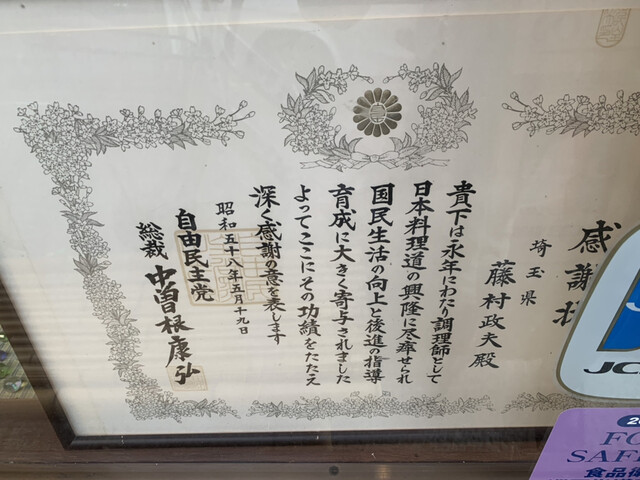 感謝状
埼玉県
藤村政夫殿
貴下は永年にわたり調理師として
日本料理道の興隆に尽瘁せられ
国民生活の向上と後進の指導
育成に大きく寄与されました
よってここにその功績をたたえ
深く感謝の意を表します
昭和五十八年五月十九日
自由民主党
総裁 中曽根康弘
JC
FO
SAF
食品衛